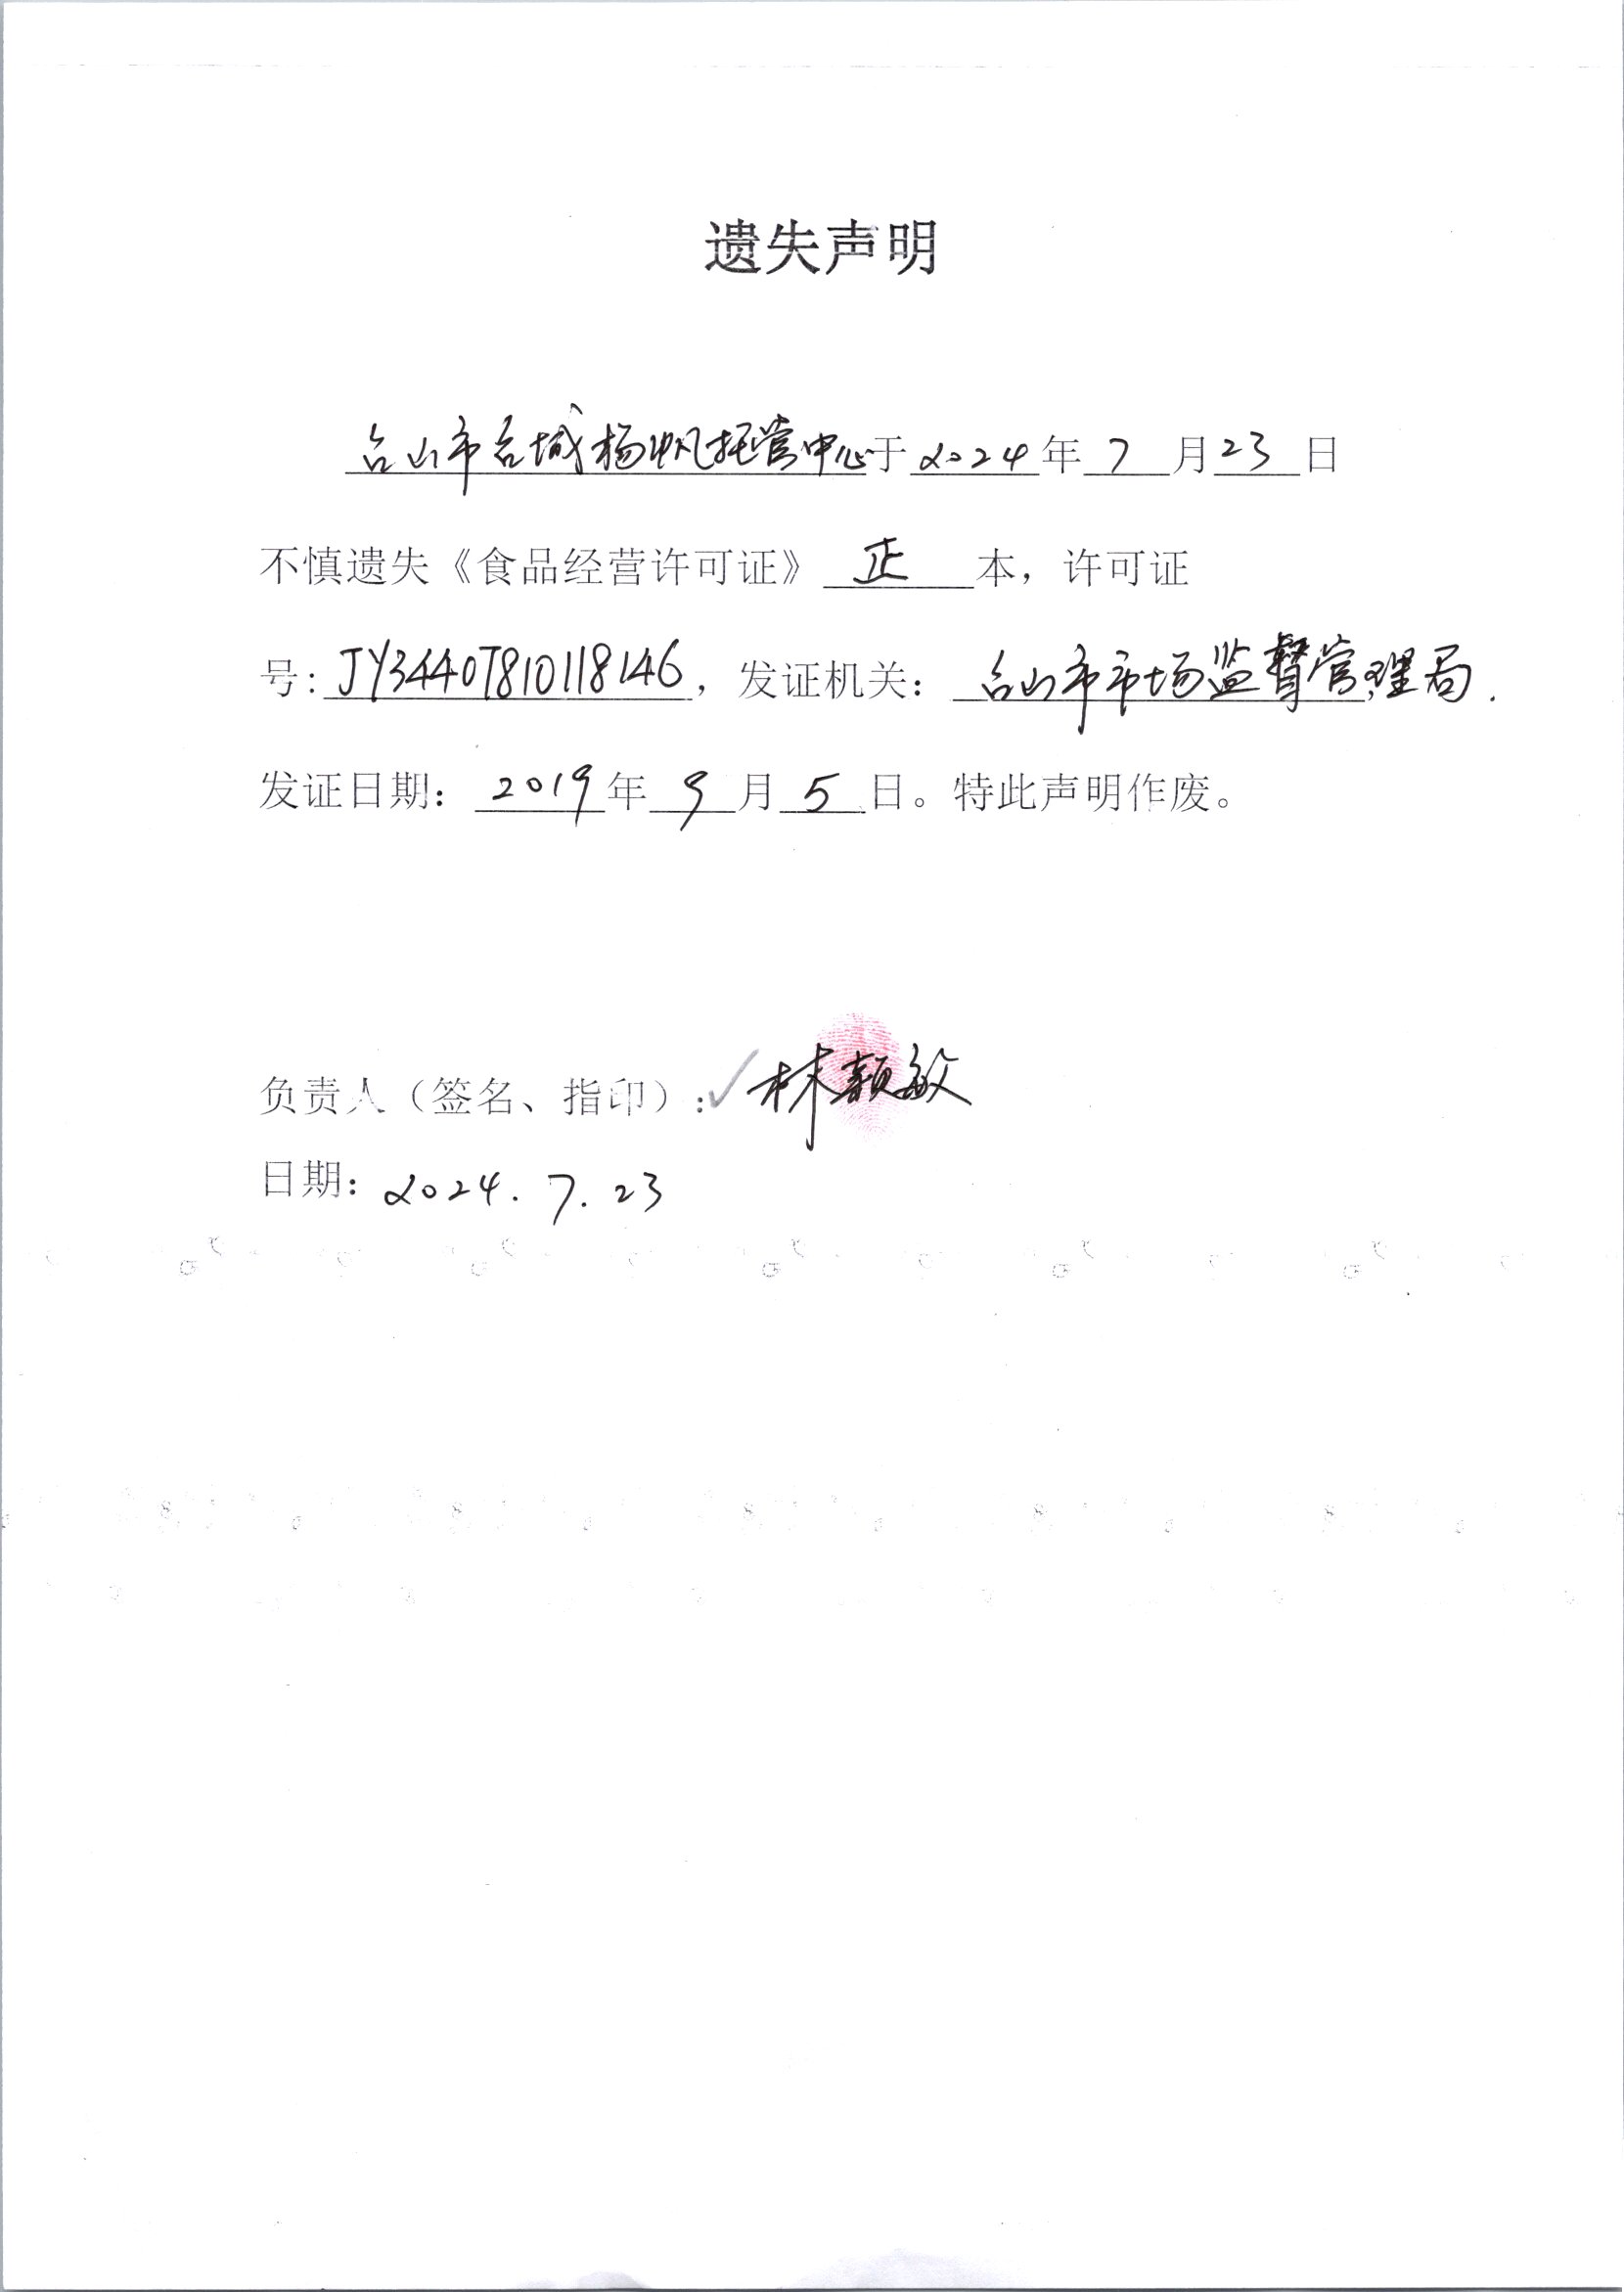 遗失声明
台山市台城杨帆托管中心于2024年7月23日
不慎遗失《食品经营许可证》正本，许可证
号:JY34407810118146，发证机关：台山市市场监督管理局.
发证日期：2019年9月5日。特此声明作废。
负责人（签名、指印）:✓林颖敏
日期：2024.7.23